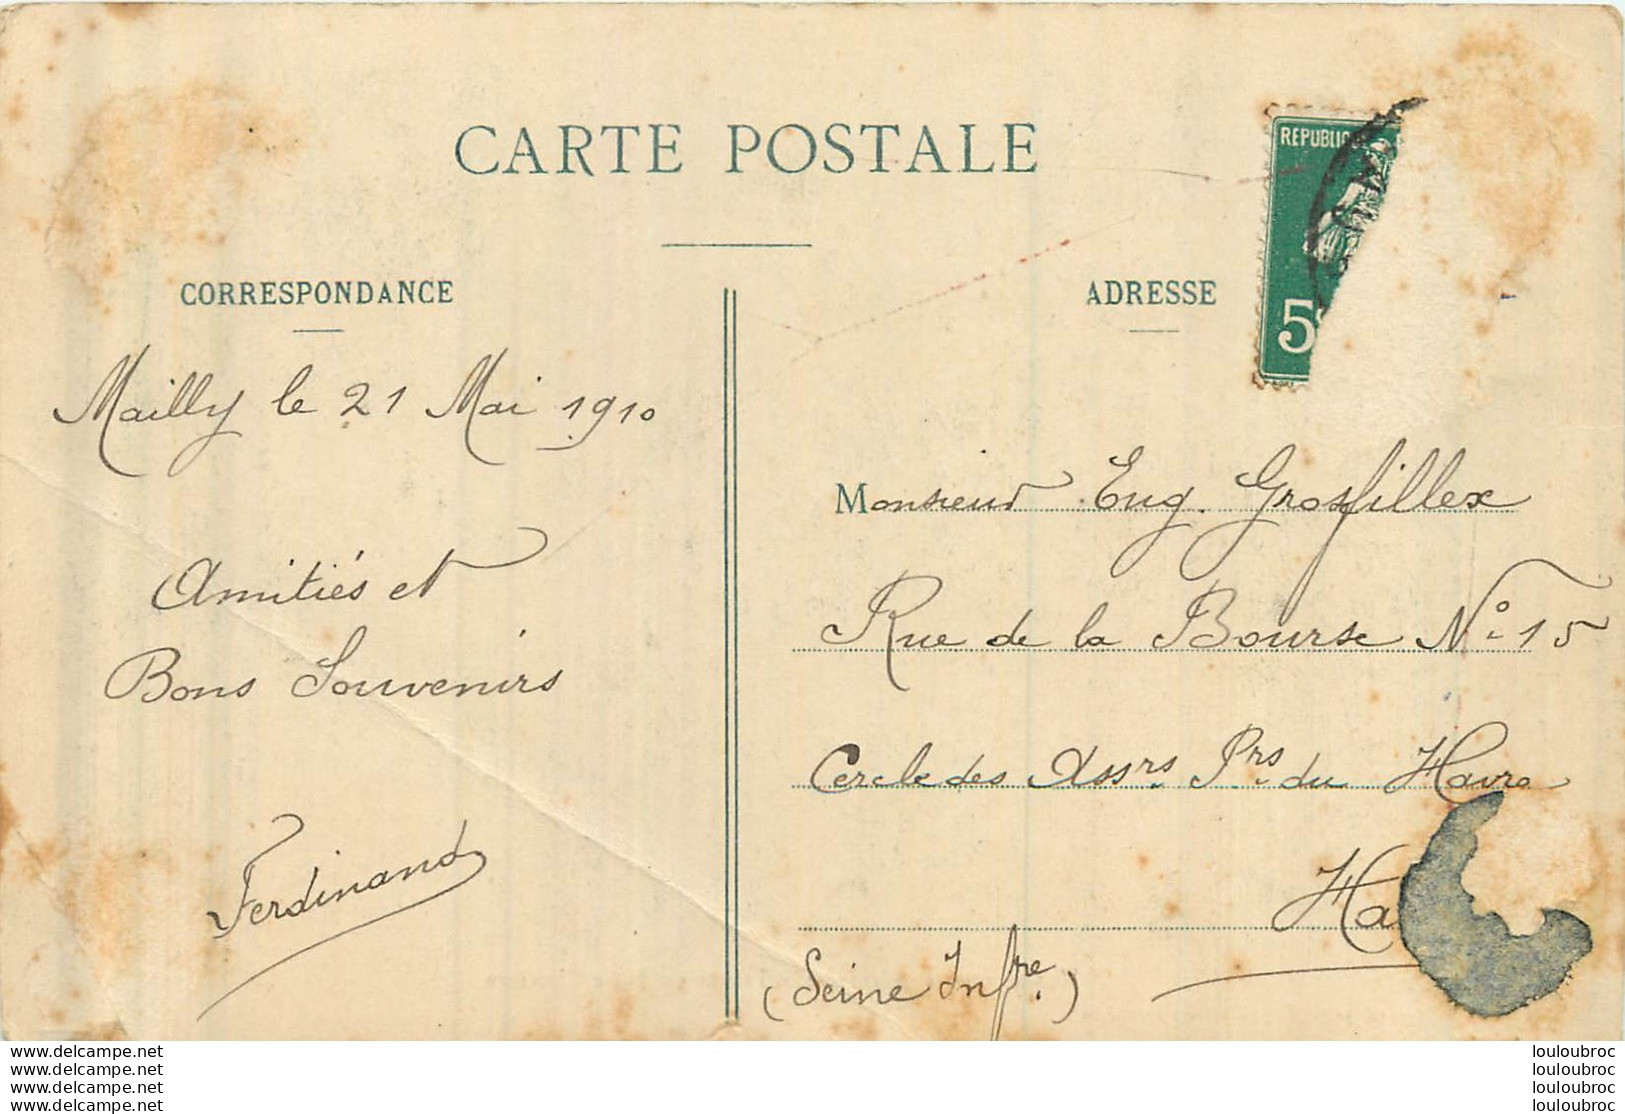 CARTE POSTALE
REPUBLIC
5
CORRESPONDANCE
ADRESSE
Mailly le 21 Mai 1910
Amitiés et
Bons Souvenirs
Ferdinand
Monsieur Eug. Grosfillex
Rue de la Bourse N° 15
Cercle des Assrs Prs du Havre
Ha
(Seine Infre.)
www.delcampe.net
www.delcampe.net
www.delcampe.net
www.delcampe.net
louloubroc
louloubroc
louloubroc
louloubroc